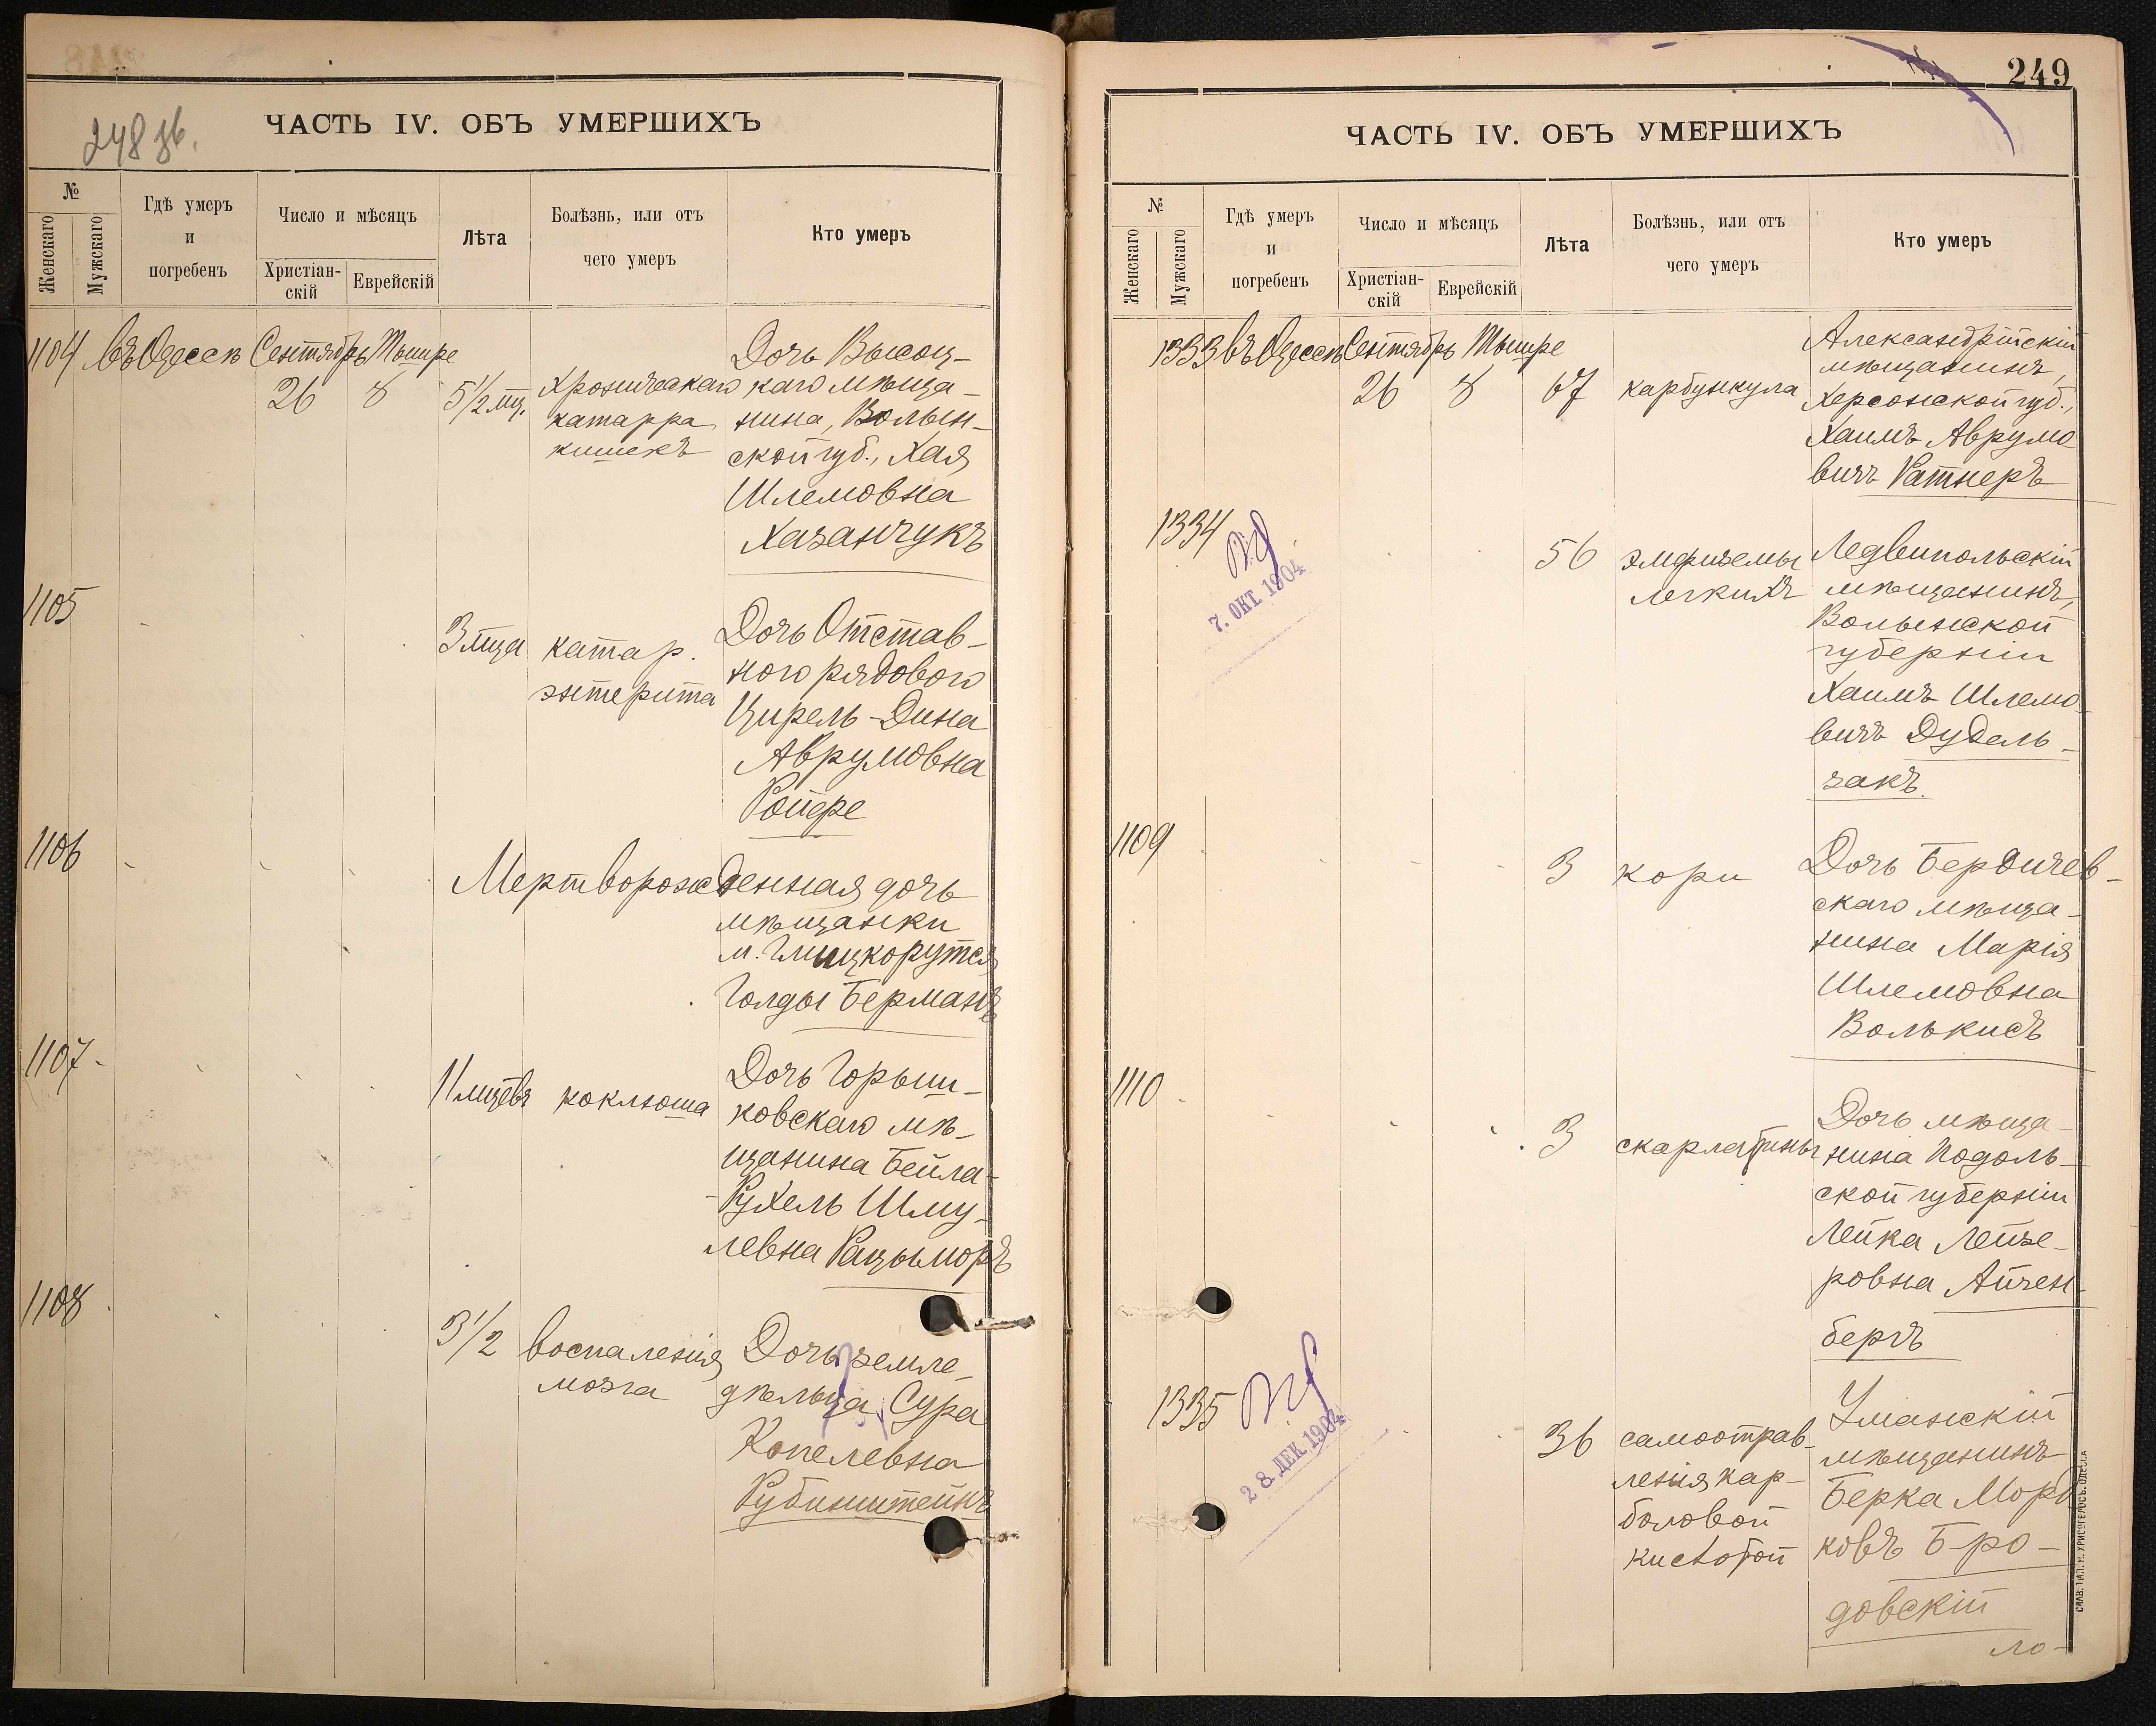 248 зв.
ЧАСТЬ IV. ОБЪ УМЕРШИХЪ
№
Женскаго
Мужскаго
Гдѣ умеръ
и
погребенъ
Число и мѣсяцъ
Христіан-
скій
Еврейскій
Лѣта
Болѣзнь, или отъ
чего умеръ
Кто умеръ
1104 въ Одессѣ Сентябрь Тышре
26 8 5½ мц.
хроническаго
катарра
кишекъ
Дочь Высоц-
каго мѣща-
нина, Волын-
ской губ., Хая
Шлемовна
Хазанчукъ
1105
3 мца
катар.
энтерита
Дочь Отстав-
ного рядового
Цирель-Дина
Аврумовна
Ройфе
1106
Мертворожденная дочь
мѣщанки
м.
Голды Берманъ
1107
11 мцевъ коклюша
Дочь Горыш-
ковскаго мѣ-
щанина Бейла-
Рухель Шму-
левна Рацыморъ
1108
3½ воспаленія
мозга
Дочь земле-
дѣльца Сура
Копелевна
Рубинштейнъ
249
ЧАСТЬ IV. ОБЪ УМЕРШИХЪ
№
Женскаго
Мужскаго
Гдѣ умеръ
и
погребенъ
Число и мѣсяцъ
Христіан-
скій
Еврейскій
Лѣта
Болѣзнь, или отъ
чего умеръ
Кто умеръ
1333 въ Одессѣ Сентябрь Тышре
26 8 67 карбункула
Александрійскій
мѣщанинъ,
Херсонской губ.,
Хаимъ Аврумо
вичъ Ратнеръ
1334
7. ОКТ. 1904
56 эмфиземы
легкихъ
Ледвипольскій
мѣщанинъ,
Волынской
губерніи
Хаимъ Шлемо-
вичъ Дудель-
закъ.
1109
3 кори
Дочь Бердичев-
скаго мѣща-
нина Марія
Шлемовна
Волькисъ
1110
3 скарлатины
Дочь мѣща-
нина Подоль-
ской губерніи
Лейка Лейзе-
ровна Айзен-
бергъ
1335
28. ДЕК 1904
36 самоотрав-
ленія кар-
боловой
кислотой
Уманскій
мѣщанинъ
Берка Морд
ковъ Бро-
довскій
ло-
СЛАВ. ТИП. Н. ХРИСОГЕЛОСЪ, ОДЕССА